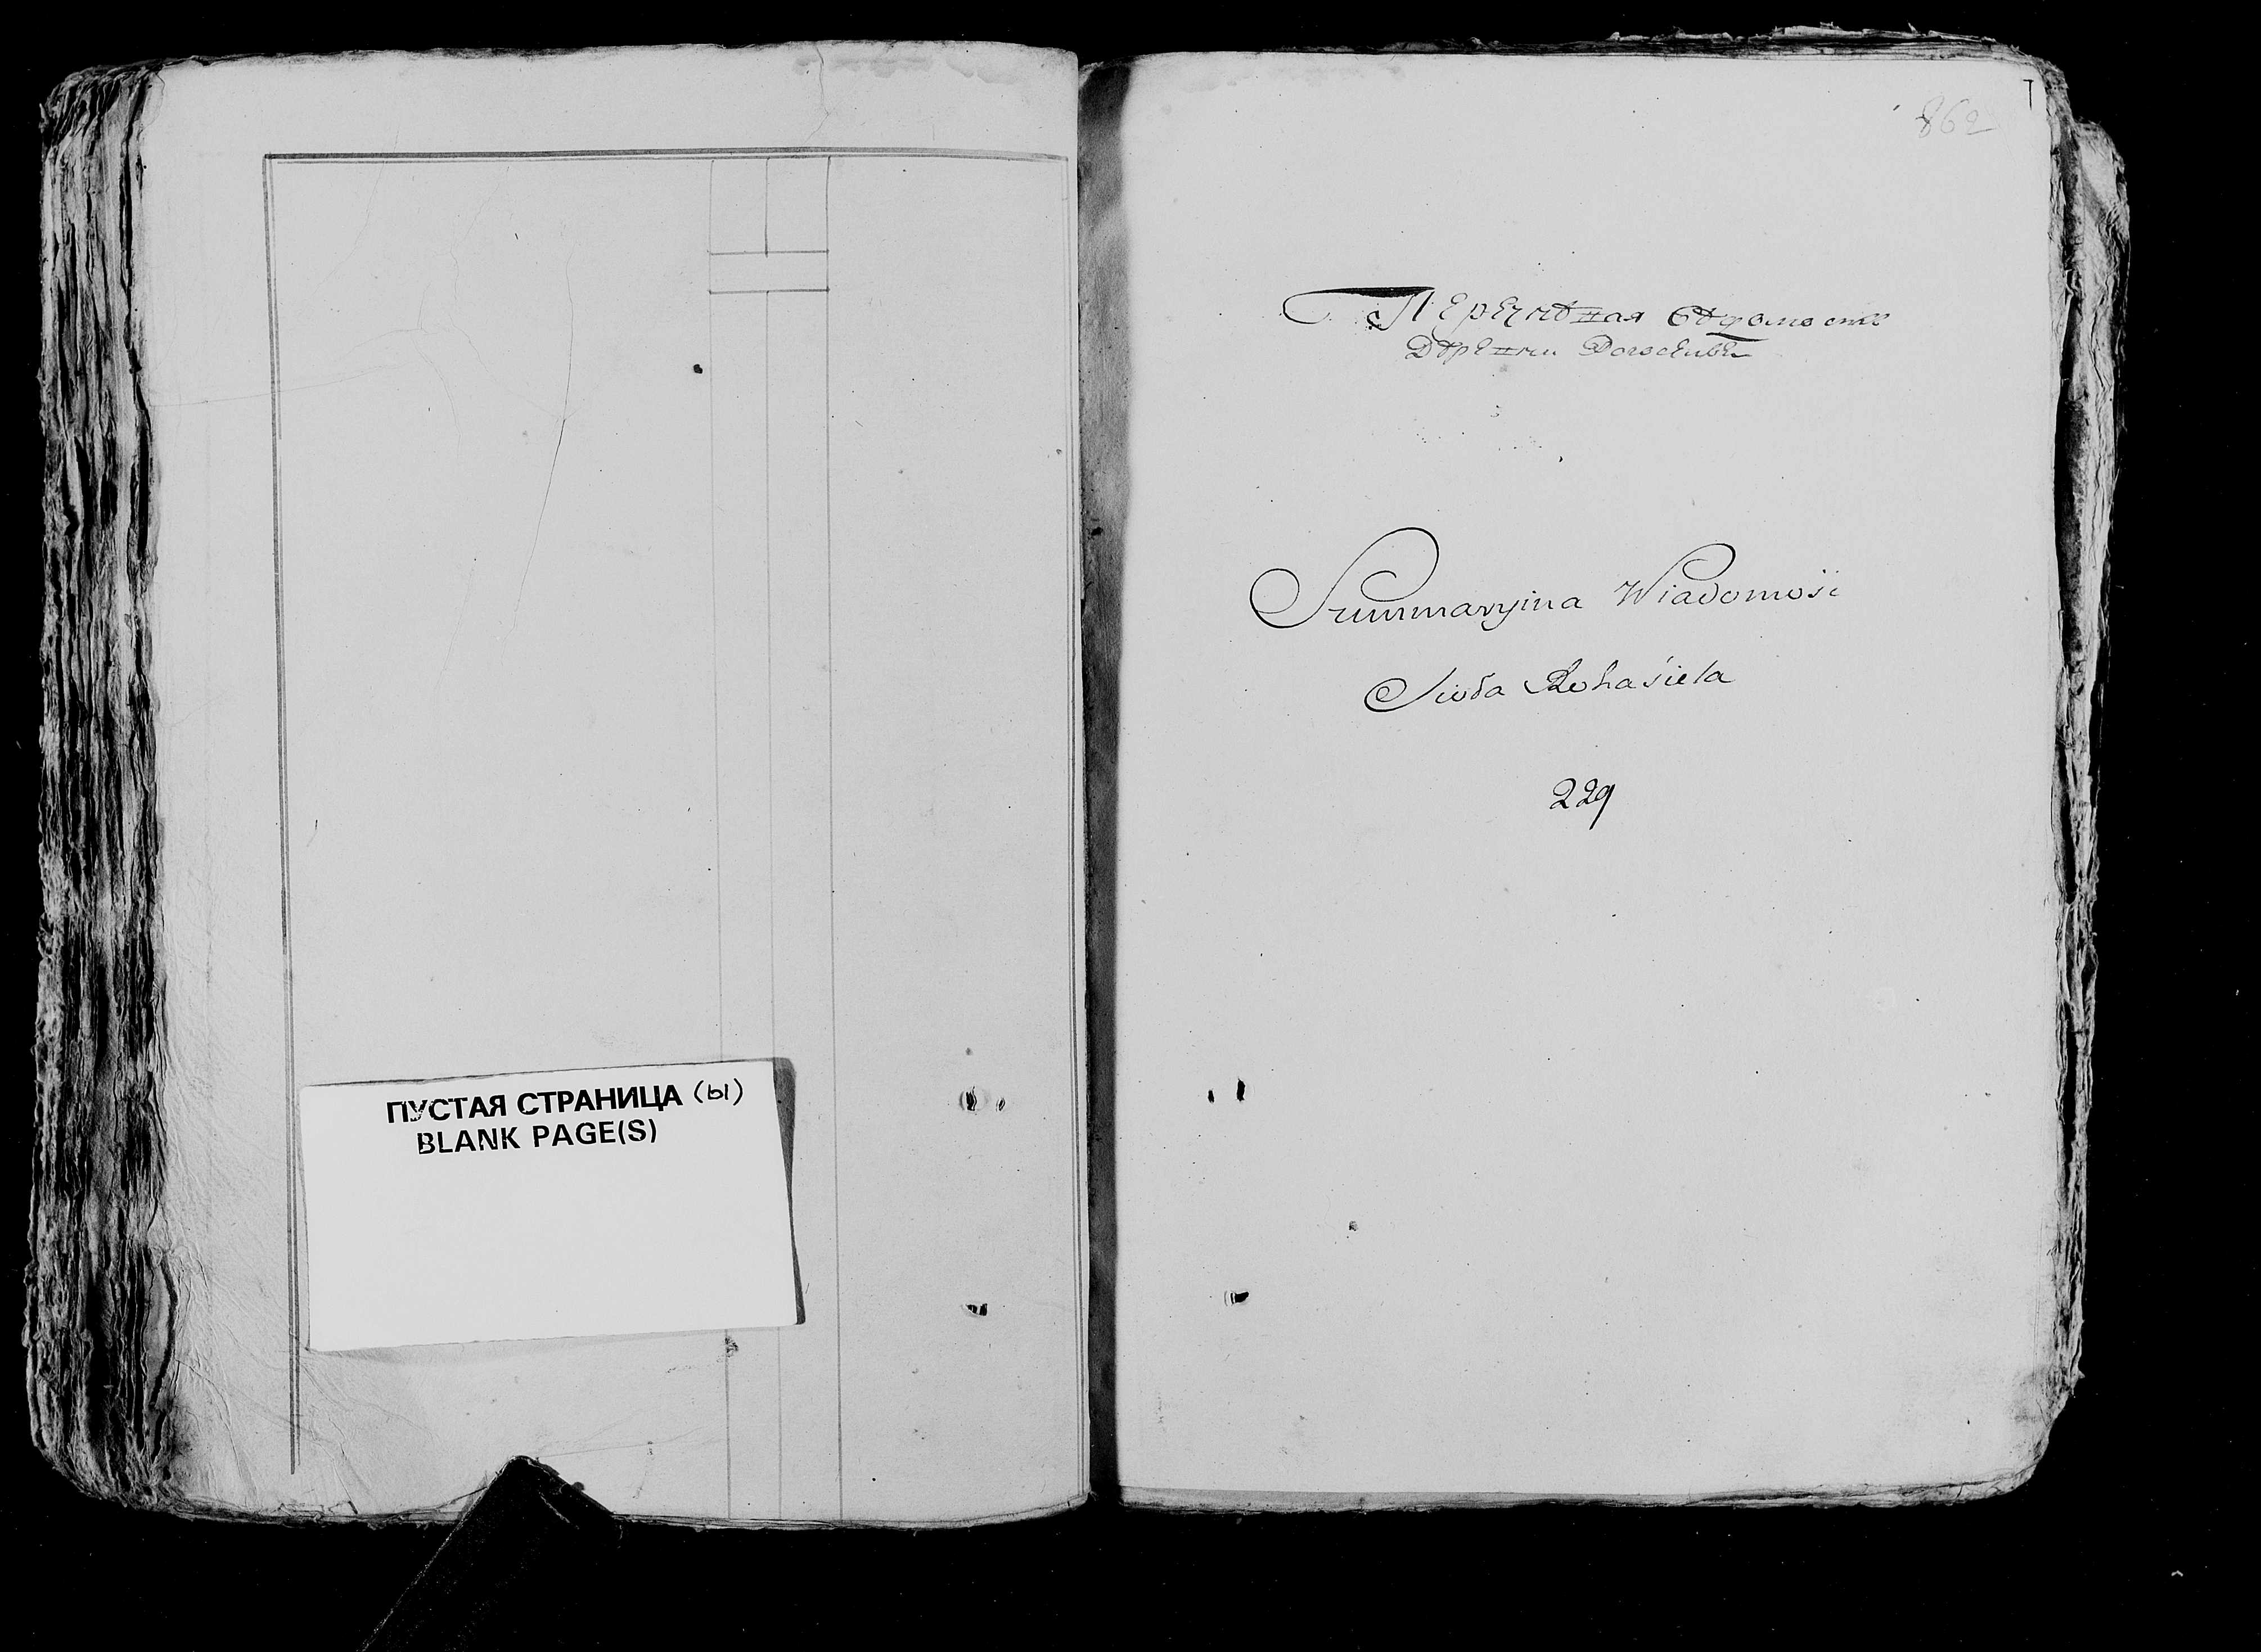 ПУСТАЯ СТРАНИЦА (ы)
BLANK PAGE(S)
862
Перечневая Вѣдомость
Деревни
Summaryina Wiadomość
Sioła Rohasieła
229